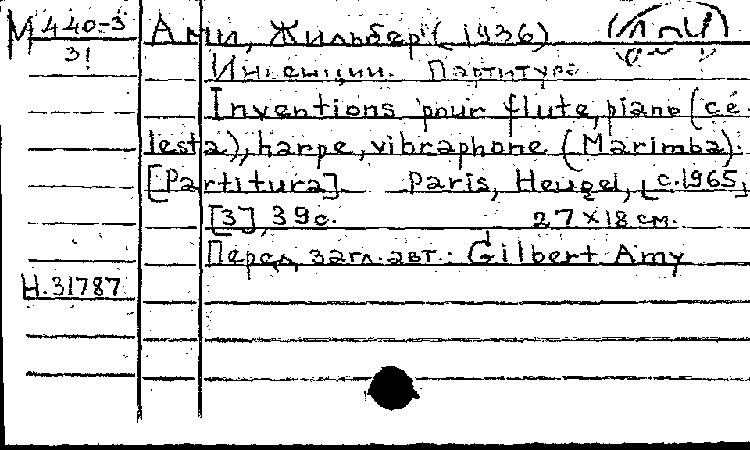 М 440-3
31
Ами, Жильбер (1936)
Инвенции. Партитура
Inventions pour flute, piano (cé
lesta), harpe, vibraphone (Marimba).
[Partitura]. Paris, Heugel, [c.1965]
[3], 39 с. 27 x 18 см.
Перед загл. авт.: Gilbert Amy
Н.31787